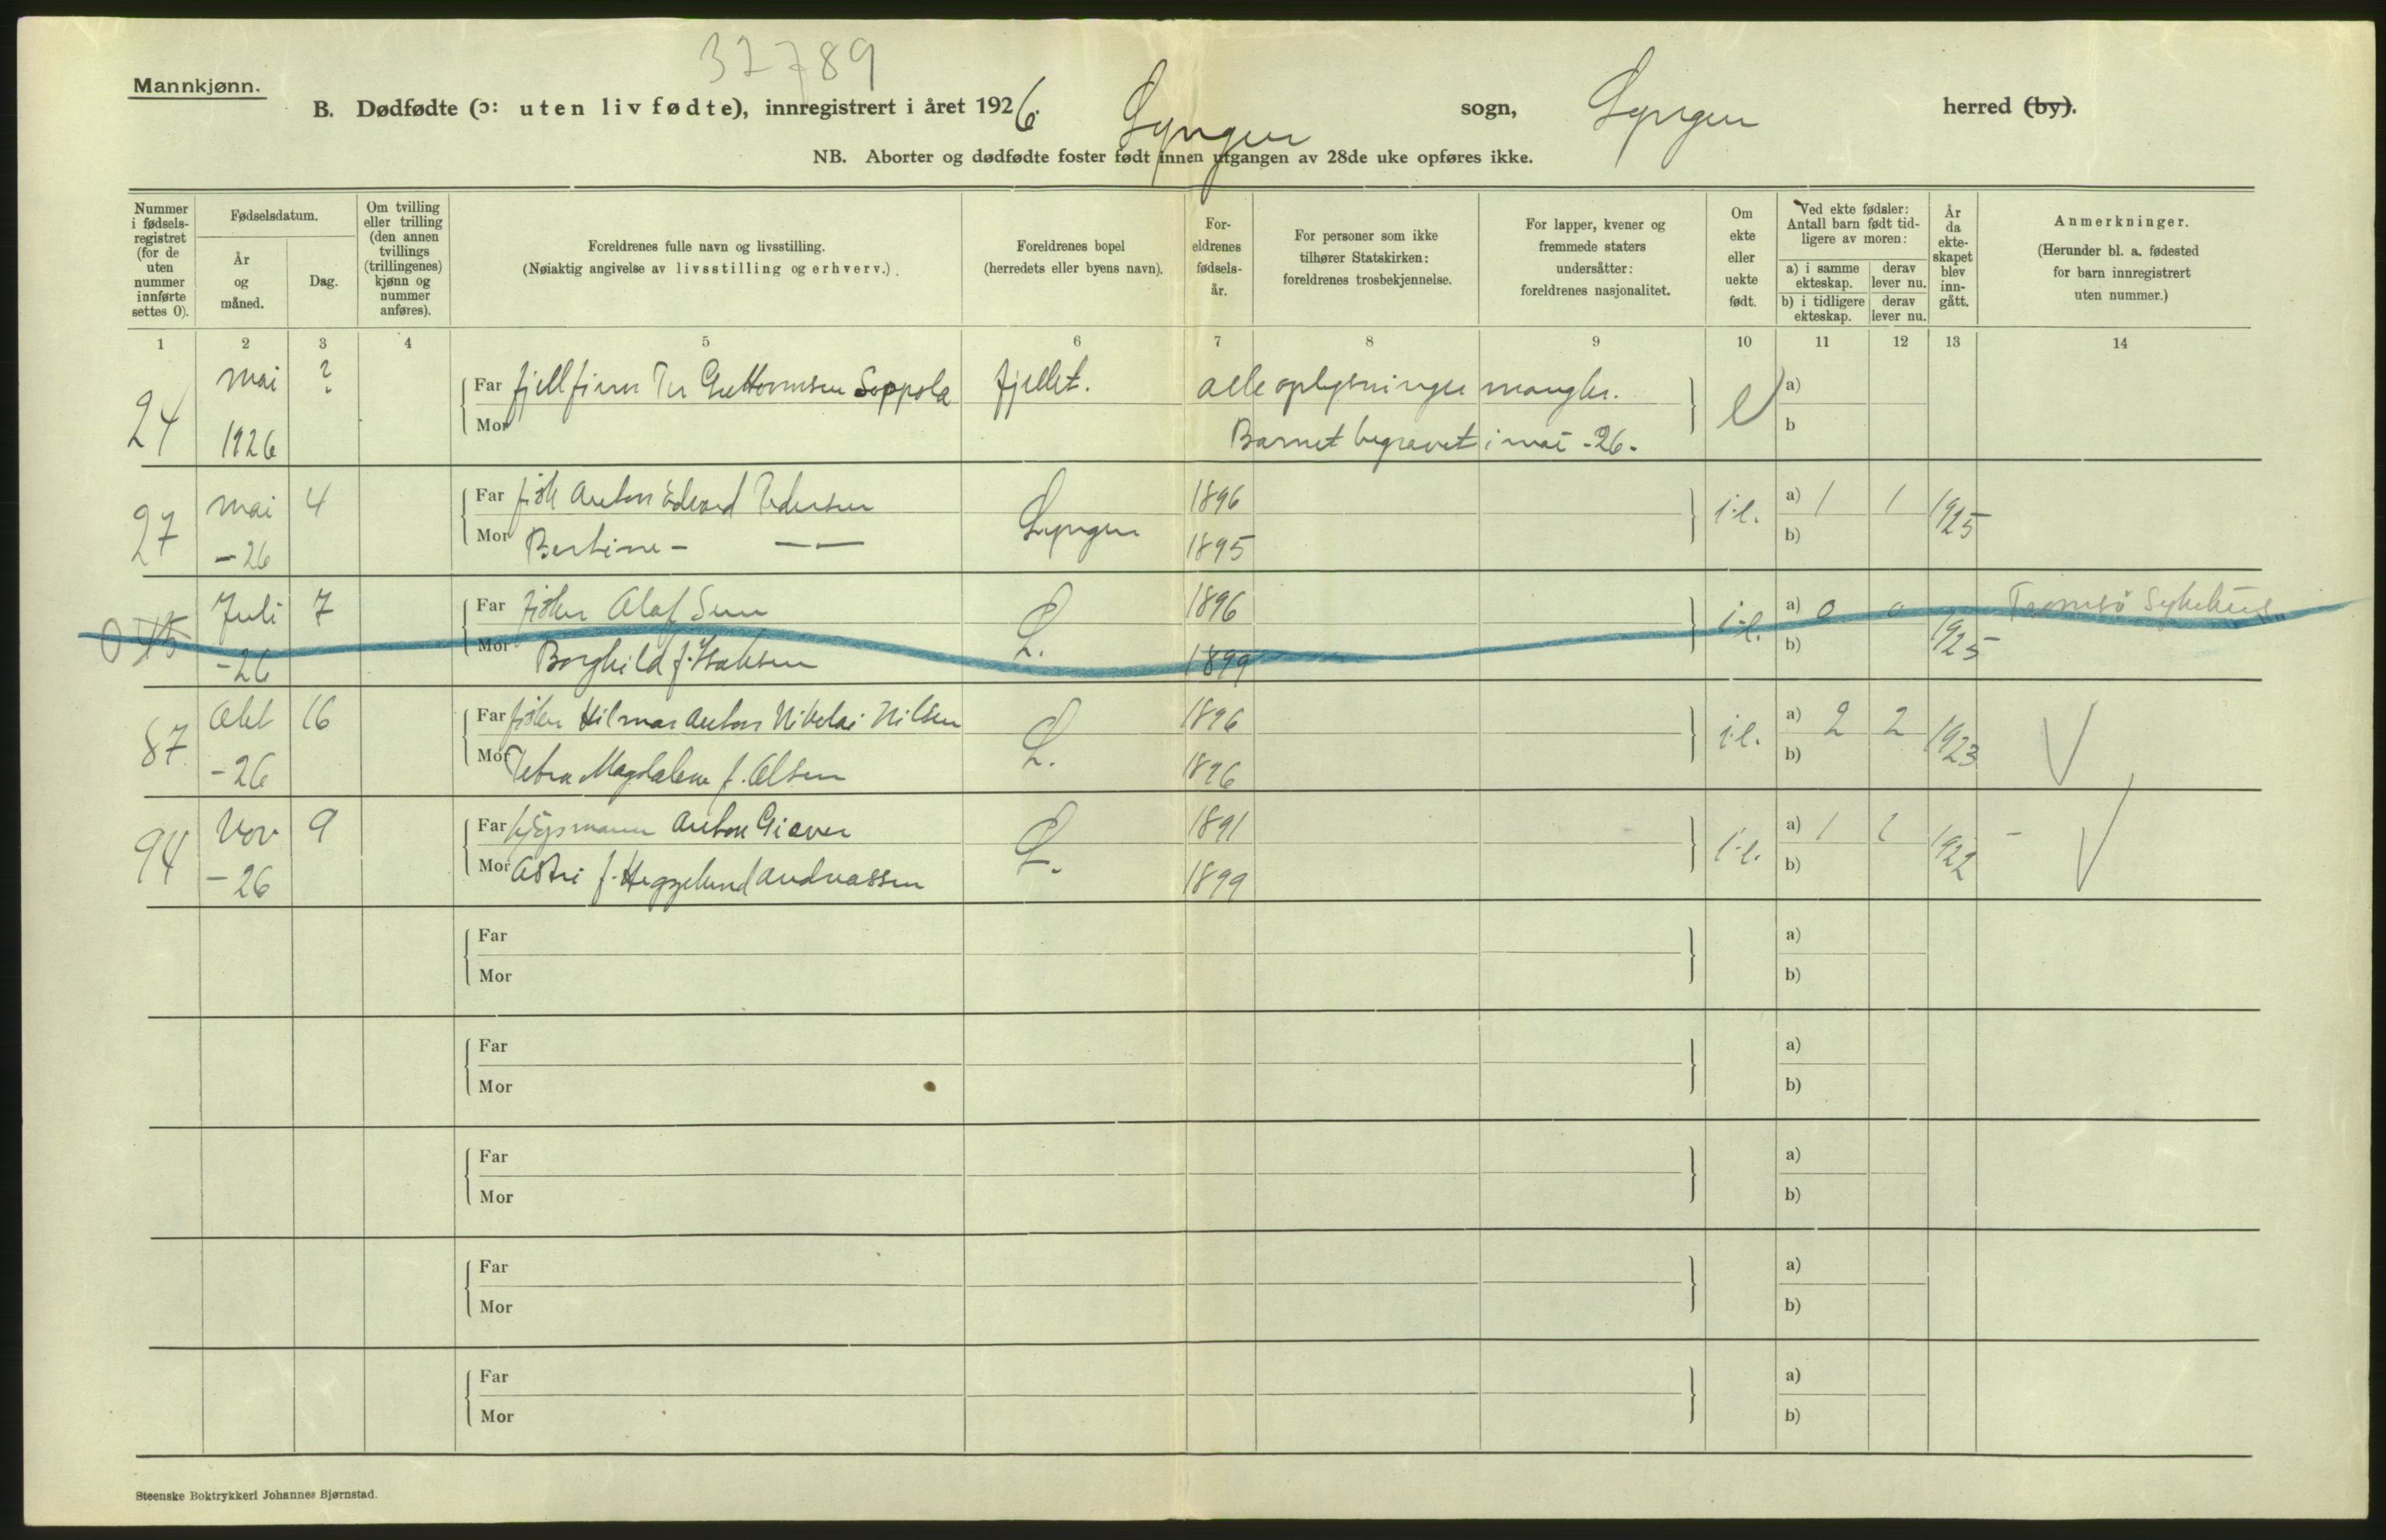 32789
Mannkjønn.
B. Dødfødte (ɔ: uten liv fødte), innregistrert i året 1926. Lyngen sogn, Lyngen herred (by).
NB. Aborter og dødfødte foster født innen utgangen av 28de uke opføres ikke.
Nummer i fødsels-registret (for de uten nummer innførte settes 0).
Fødselsdatum.
År og måned.
Dag.
Om tvilling eller trilling (den annen tvillings (trillingenes) kjønn og nummer anføres).
Foreldrenes fulle navn og livsstilling.
(Nøiaktig angivelse av livsstilling og erhverv.).
Foreldrenes bopel
(herredets eller byens navn).
For-eldrenes fødsels-år.
For personer som ikke tilhører Statskirken: foreldrenes trosbekjennelse.
For lapper, kvener og fremmede staters undersåtter: foreldrenes nasjonalitet.
Om ekte eller uekte født.
Ved ekte fødsler: Antall barn født tid-ligere av moren:
a) i samme ekteskap.
derav lever nu.
b) i tidligere ekteskap.
derav lever nu.
År da ekte-skapet blev inn-gått.
Anmerkninger.
(Herunder bl. a. fødested for barn innregistrert uten nummer.)
1 2 3 4 5 6 7 8 9 10 11 12 13 14
24 mai ? Far fjellfinn Per Guttormsen Soppola fjellet. alle oplysninger mangler. e a)
1926 Mor Barnet begravet i mai -26- b
27 mai 4 Far fisk Anton Edvard Pedersen Lyngen 1896 i.e. a) 1 1 1925
-26 Mor Bertine - — — 1895 b)
0 Juli 7 Far fisker Olaf L. 1896 i.e. a) 0 0 1925 Tromsø Sykehus
-26 Mor Borghild f. Isaksen 1899 b)
87 Okt 16 Far fisker Hilmar Anton Nikolai Nilsen L. 1896 i.e. a) 2 2 1923
-26 Mor Petra Magdalene f. Olsen 1896 b)
94 Nov 9 Far Anton Giæver L. 1891 i.e. a) 1 1 1922 -
-26 Mor Astri f. Heggelund Andreassen 1899 b)
Far a)
Mor b)
Far a)
Mor b)
Far a)
Mor b)
Far a)
Mor b)
Far a)
Mor b)
Steenske Boktrykkeri Johannes Bjørnstad.